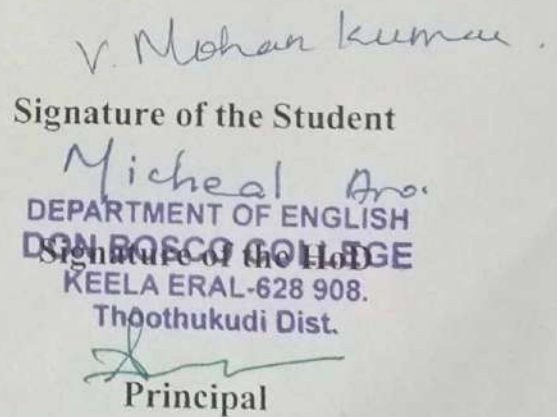 V. Mohan Kumar.
Signature of the Student
Micheal Aro.
DEPARTMENT OF ENGLISH
DON BOSCO COLLEGE
Signature of the HoD
KEELA ERAL-628 908.
Thoothukudi Dist.
Principal